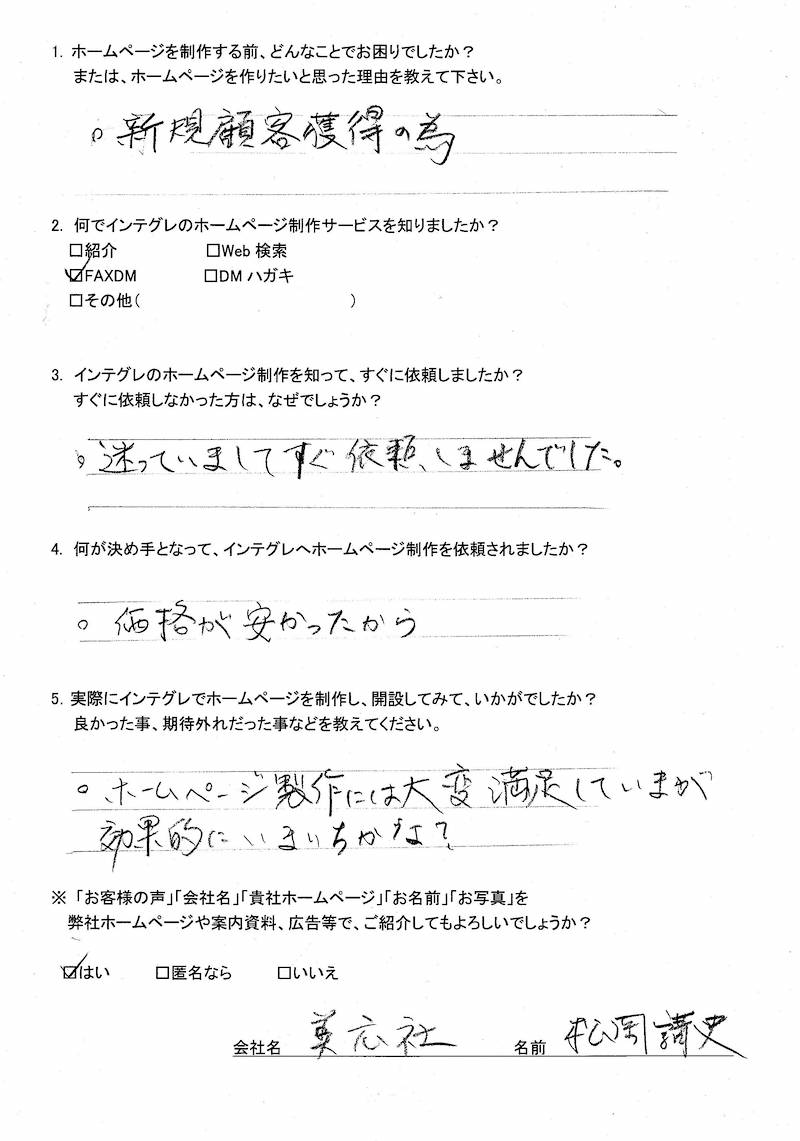 1. ホームページを制作する前、どんなことでお困りでしたか？
または、ホームページを作りたいと思った理由を教えて下さい。
○ 新規顧客獲得の為
2. 何でインテグレのホームページ制作サービスを知りましたか？
□紹介 □Web 検索
☑FAXDM □DM ハガキ
□その他（ ）
3. インテグレのホームページ制作を知って、すぐに依頼しましたか？
すぐに依頼しなかった方は、なぜでしょうか？
○ 迷っていましてすぐ依頼、しませんでした。
4. 何が決め手となって、インテグレへホームページ制作を依頼されましたか？
○ 価格が安かったから
5. 実際にインテグレでホームページを制作し、開設してみて、いかがでしたか？
良かった事、期待外れだった事などを教えてください。
○ ホームページ製作には大変満足していまが
効果的にいまいちかなよ？
※ 「お客様の声」「会社名」「貴社ホームページ」「お名前」「お写真」を
弊社ホームページや案内資料、広告等で、ご紹介してもよろしいでしょうか？
☑はい □匿名なら □いいえ
会社名 英広社 名前 松岡講史